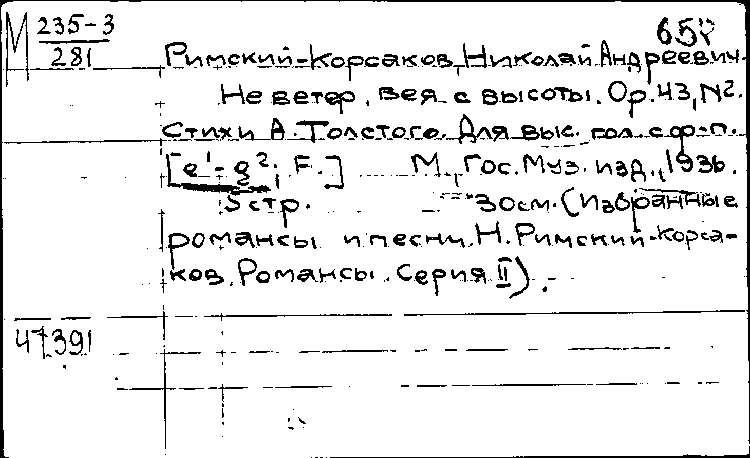 М 235-3
281
657
Римский-Корсаков, Николай Андреевич.
Не ветер, вея с высоты. Op. 43, №2.
Стихи А. Толстого. Для выс. гол. с ф-п.
[e¹-g²; F.] М., Гос. Муз. изд., 1936.
5 стр. 30 см. (Избранные
романсы и песни. Н. Римский-Корса-
ков. Романсы. Серия II).
47391